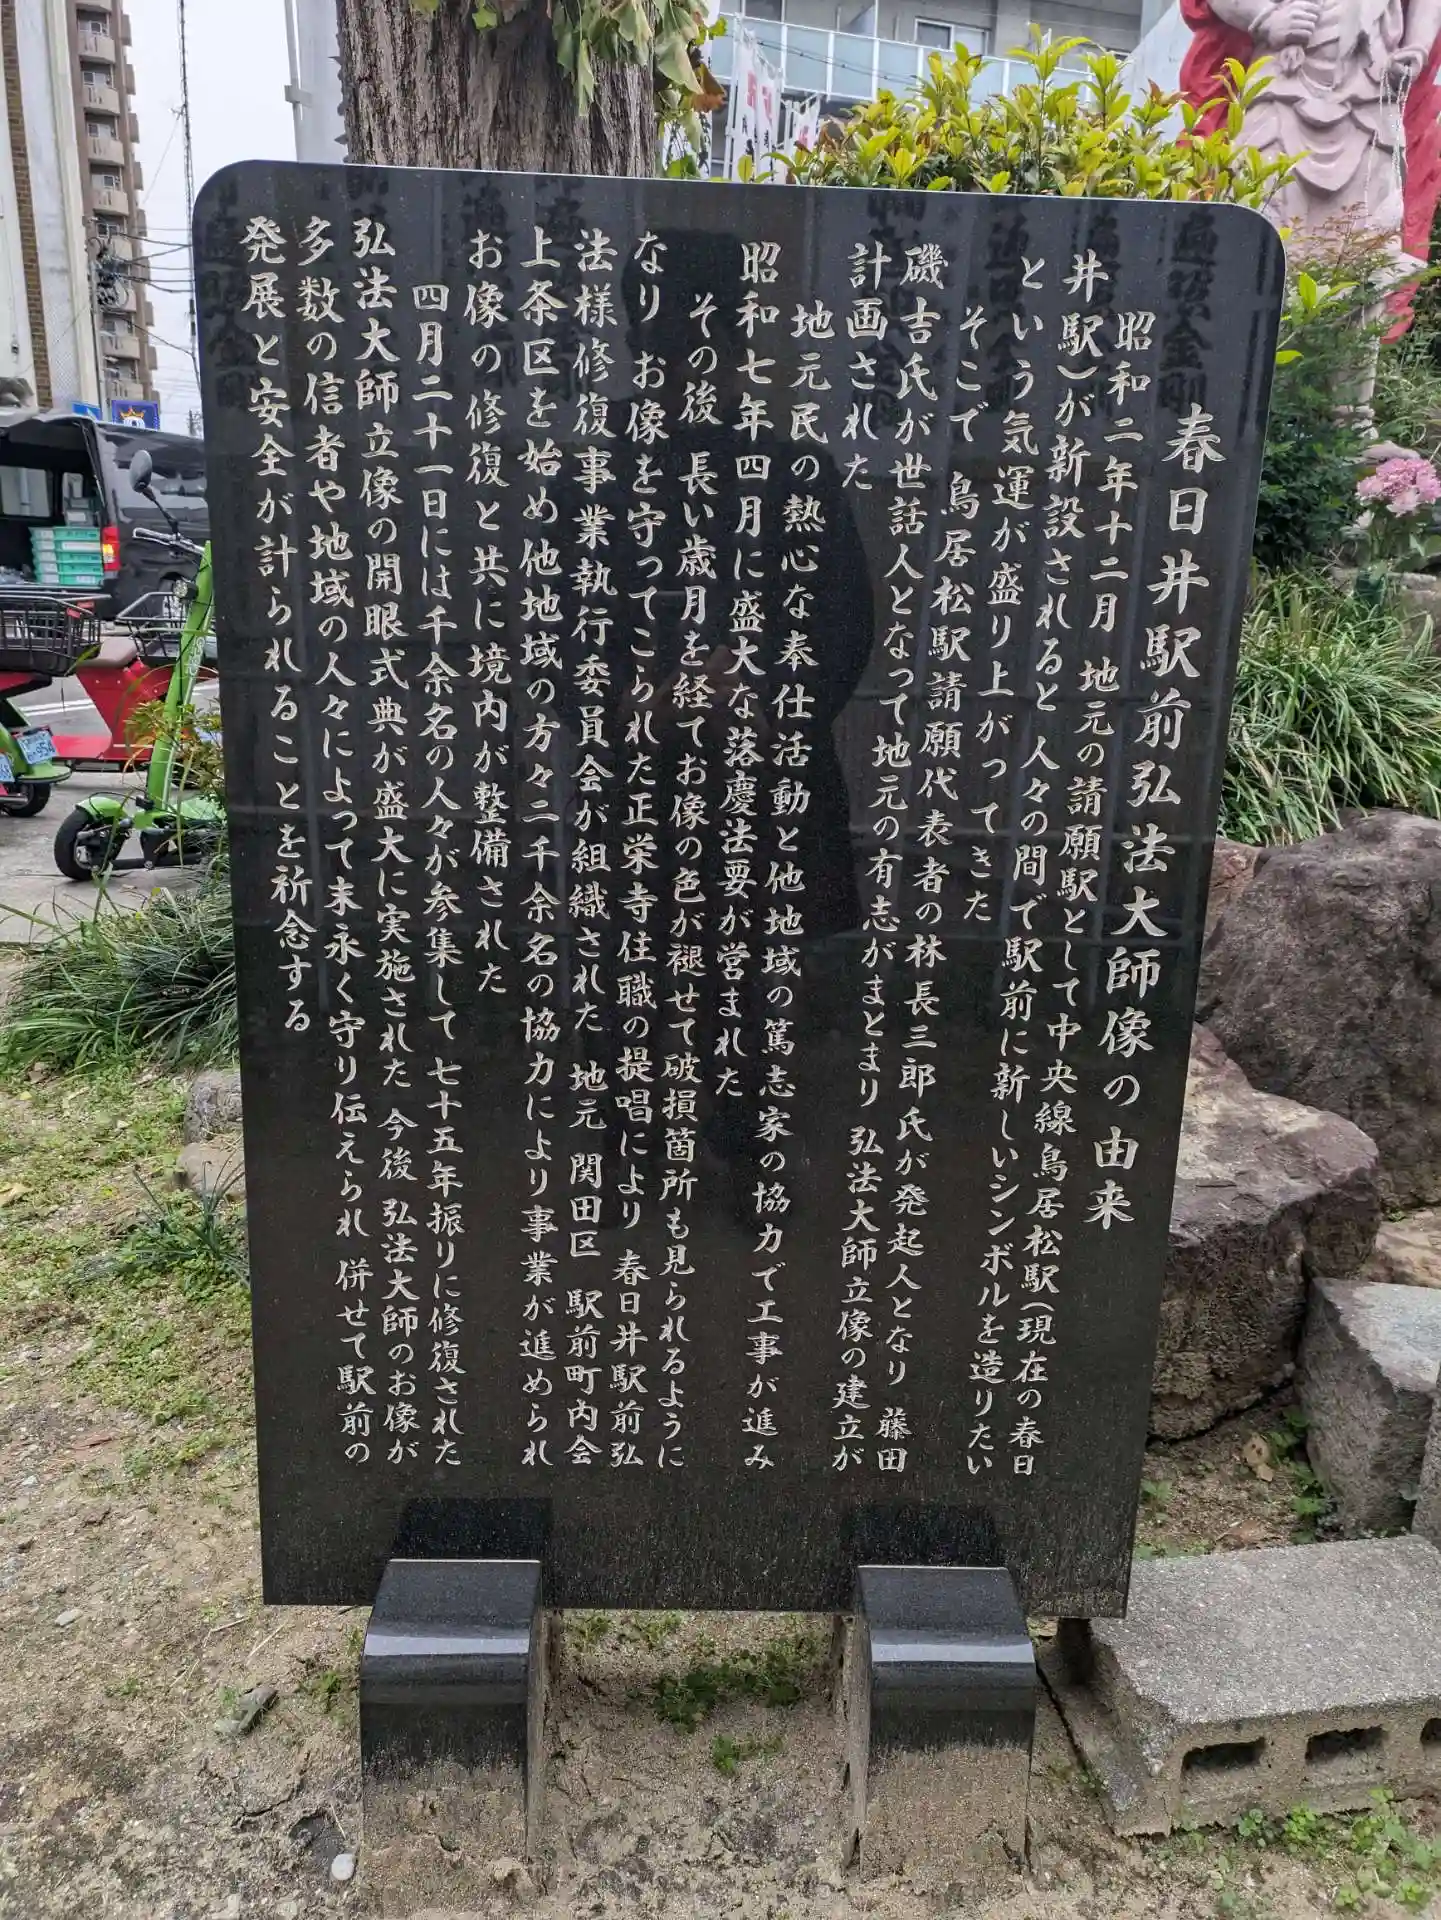 春日井駅前弘法大師像の由来
昭和二年十二月 地元の請願駅として中央線鳥居松駅(現在の春日
井駅)が新設されると 人々の間で駅前に新しいシンボルを造りたい
という気運が盛り上がってきた
そこで 鳥居松駅請願代表者の林長三郎氏が発起人となり 藤田
磯吉氏が世話人となって地元の有志がまとまり 弘法大師立像の建立が
計画された
地元民の熱心な奉仕活動と他地域の篤志家の協力で工事が進み
昭和七年四月に盛大な落慶法要が営まれた
その後 長い歳月を経てお像の色が褪せて破損箇所も見られるように
なり お像を守ってこられた正栄寺住職の提唱により 春日井駅前弘
法様修復事業執行委員会が組織された 地元 関田区 駅前町内会
上条区を始め他地域の方々二千余名の協力により事業が進められ
お像の修復と共に境内が整備された
四月二十一日には千余名の人々が参集して 七十五年振りに修復された
弘法大師立像の開眼式典が盛大に実施された 今後 弘法大師のお像が
多数の信者や地域の人々によって末永く守り伝えられ 併せて駅前の
発展と安全が計られることを祈念する